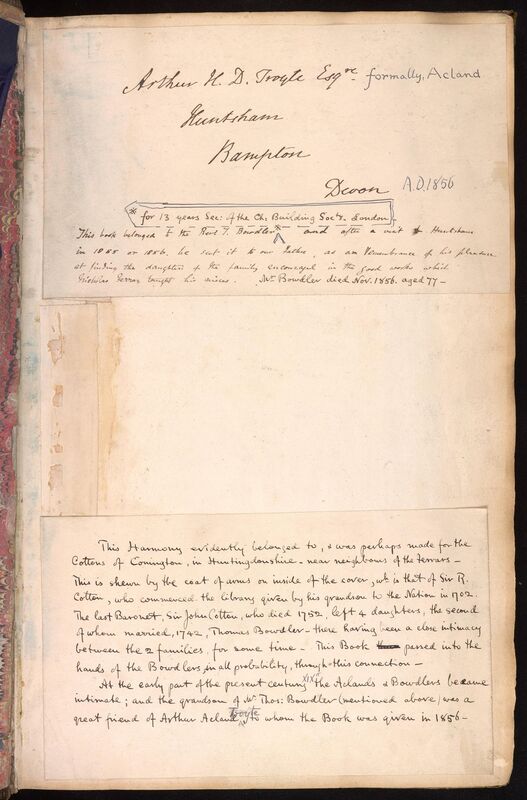 Arthur H. D. Troyte Esqre. formally, Acland
Huntsham
Bampton
Devon A.D. 1856
* for 13 years Sec: of the Ch: Building Socy. London.
This book belonged to the Revd. T. Bowdler * and after a visit to Huntsham
in 1855 or 1856, he sent it to our Father, as an Remembrance of his pleasure
at finding the daughters of the family encouraged in the good works which
Nicholas Ferrar taught his nieces. Mr. Bowdler died Nov. 1856. aged 77 —
This Harmony evidently belonged to, & was perhaps made for the
Cottons of Conington, in Huntingdonshire - near neighbours of the Ferrars —
This is shewn by the coat of arms on inside of the cover, wh. is that of Sir R.
Cotton, who commenced the library given by his grandson to the Nation in 1702.
The last Baronet, Sir John Cotton, who died 1752, left 4 daughters, the second
of whom married, 1742, Thomas Bowdler - there having been a close intimacy
between the 2 families, for some time - This Book passed into the
hands of the Bowdlers, in all probability, through this connection —
At the early part of the present century XIX the Aclands & Bowdlers became
intimate; and the grandson of Mr. Thos: Bowdler (mentioned above) was a
great friend of Arthur Acland Troyte to whom the Book was given in 1856 —